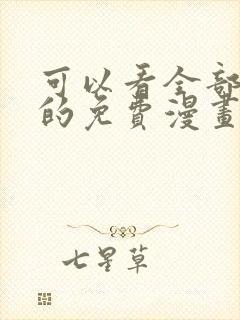 可以看全部
的免費漫畫
七星草